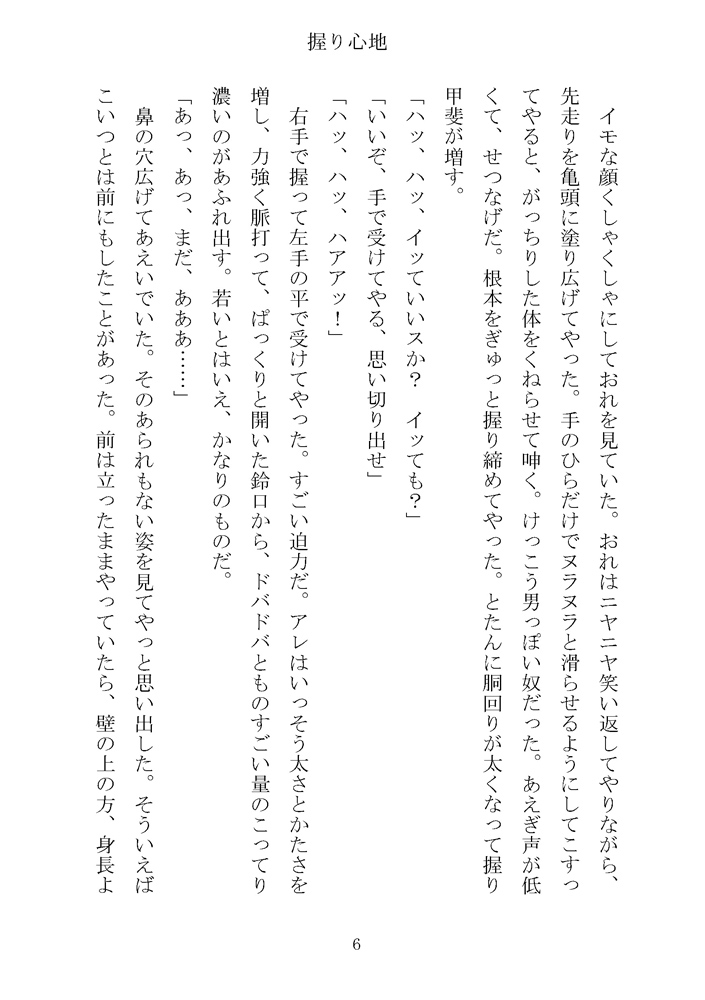 握り心地
　イモな顔くしゃくしゃにしておれを見ていた。おれはニヤニヤ笑い返してやりながら、
先走りを亀頭に塗り広げてやった。手のひらだけでヌラヌラと滑らせるようにしてこすっ
てやると、がっちりした体をくねらせて呻く。けっこう男っぽい奴だった。あえぎ声が低
くて、せつなげだ。根本をぎゅっと握り締めてやった。とたんに胴回りが太くなって握り
甲斐が増す。
「ハッ、ハッ、イッていいスか？　イッても？」
「いいぞ、手で受けてやる、思い切り出せ」
「ハッ、ハッ、ハアアッ！」
　右手で握って左手の平で受けてやった。すごい迫力だ。アレはいっそう太さとかたさを
増し、力強く脈打って、ぱっくりと開いた鈴口から、ドバドバとものすごい量のこってり
濃いのがあふれ出す。若いとはいえ、かなりのものだ。
「あっ、あっ、まだ、あああ……」
　鼻の穴広げてあえいでいた。そのあられもない姿を見てやっと思い出した。そういえば
こいつとは前にもしたことがあった。前は立ったままやっていたら、壁の上の方、身長よ
6